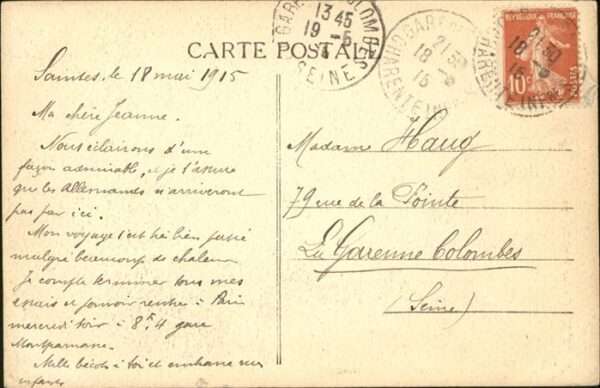 CARTE POSTALE
GARE COLOMBES
13 45
19 -6
SEINE
GARE
21 30
18 -6
15
CHARENTE INFRE
REPUBLIQUE FRANÇAISE
10c
POSTES
21 30
18 -6
15
Saintes, le 18 mai 1915
Ma chère Jeanne.
Nous éclairons d'une
façon admirable, et je t'assure
que les Allemands n'arriveront
pas par ici.
Mon voyage s'est très bien passé
malgré beaucoup de chaleur
Je compte terminer tous mes
essais et pouvoir rentrer à Paris
mercredi soir à 8h,4 gare
Montparnasse.
Mille bécots à toi et embrasse les
enfants
Madame Haug
79 rue de la Pointe
La Garenne Colombes
(Seine)